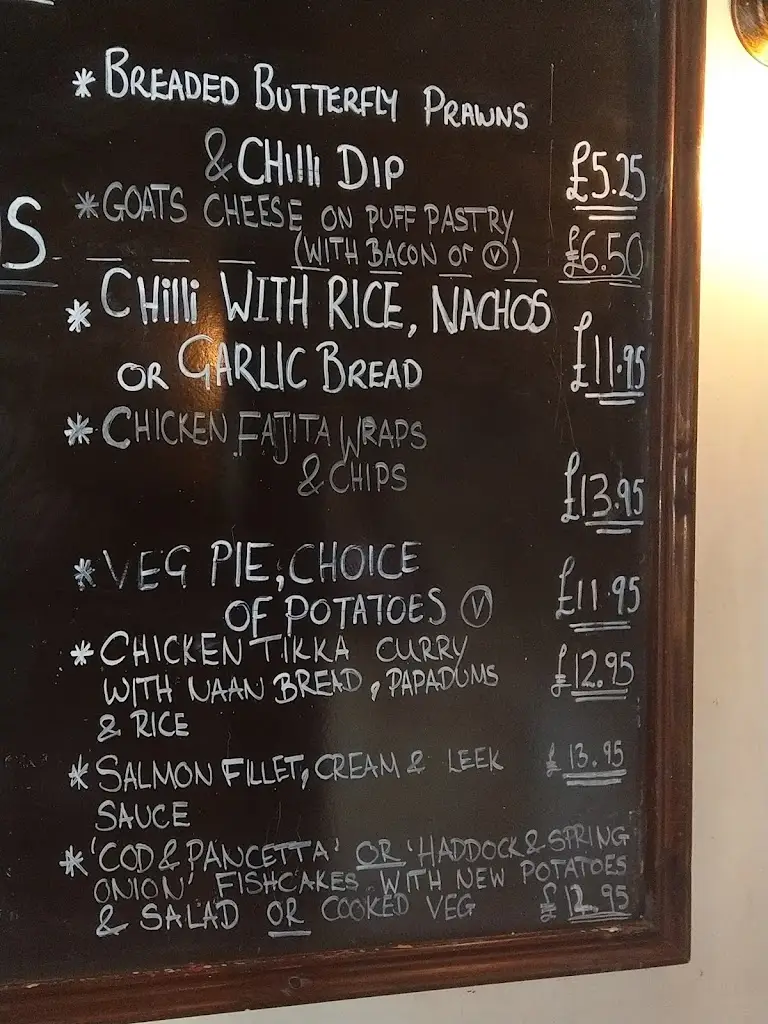 * BREADED BUTTERFLY PRAWNS
& CHILLI DIP £5.25
* GOATS CHEESE ON PUFF PASTRY
(WITH BACON OR Ⓥ) £6.50
S
* CHILLI WITH RICE, NACHOS
OR GARLIC BREAD £11.95
* CHICKEN FAJITA WRAPS
& CHIPS £13.95
* VEG PIE, CHOICE
OF POTATOES Ⓥ £11.95
* CHICKEN TIKKA CURRY
WITH NAAN BREAD, PAPADUMS £12.95
& RICE
* SALMON FILLET, CREAM & LEEK £13.95
SAUCE
* 'COD & PANCETTA' OR 'HADDOCK & SPRING
ONION' FISHCAKES WITH NEW POTATOES
& SALAD OR COOKED VEG £12.95